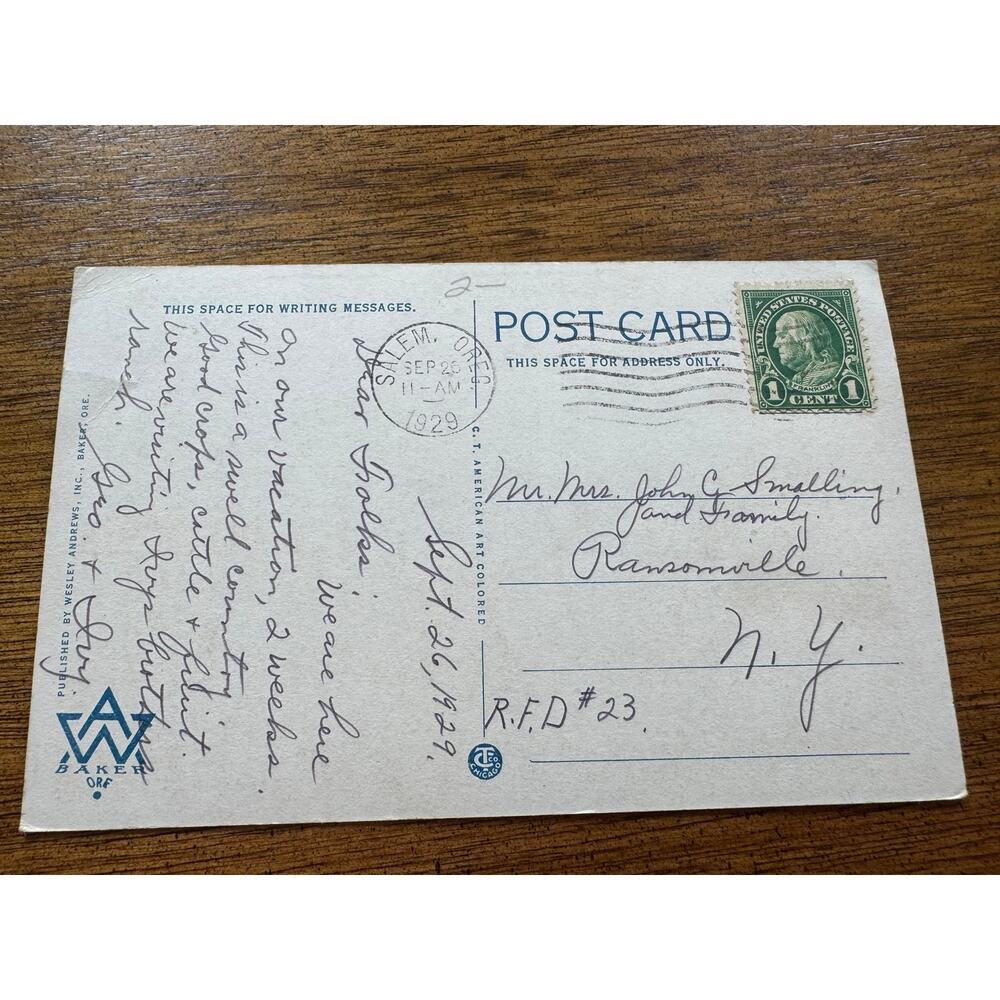 THIS SPACE FOR WRITING MESSAGES.
2-
POST CARD
THIS SPACE FOR ADDRESS ONLY.
UNITED STATES POSTAGE
FRANKLIN
1 CENT 1
SALEM, OREG.
SEP 26
11-AM
1929
Sept. 26, 1929.
Dear Folks:
We are here
on our vacation, 2 weeks
This is a swell country
Good crops, cattle + fruit.
We are visiting Ivys brothers
ranch.
Geo. + Ivy.
Mr. Mrs. John G Smalling,
and Family.
Ransomville.
N. Y.
R.F.D #23.
C. T. AMERICAN ART COLORED
PUBLISHED BY WESLEY ANDREWS, INC., BAKER, ORE.
AW
BAKER
ORE
CT CO
CHICAGO